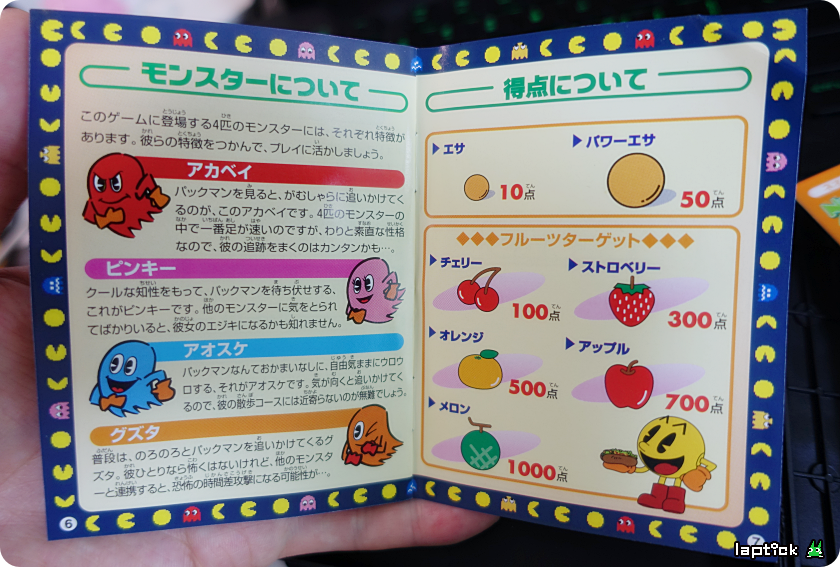 モンスターについて
このゲームに登場する4匹のモンスターには、それぞれ特徴が
あります。彼らの特徴をつかんで、プレイに活かしましょう。
アカベイ
パックマンを見ると、がむしゃらに追いかけてく
るのが、このアカベイです。4匹のモンスターの
中で一番足が速いのですが、わりと素直な性格
なので、彼の追跡をまくのはカンタンかも…。
ピンキー
クールな知性をもって、パックマンを待ち伏せする、
これがピンキーです。他のモンスターに気をとられ
てばかりいると、彼女のエジキになるかも知れません。
アオスケ
パックマンなんておかまいなしに、自由気ままにウロウ
ロする、それがアオスケです。気が向くと追いかけてく
るので、彼の散歩コースには近寄らないのが無難でしょう。
グズタ
普段は、のろのろとパックマンを追いかけてくるグ
ズタ。彼ひとりなら怖くはないけれど、他のモンスタ
ーと連携すると、恐怖の時間差攻撃になる可能性が…。
6
得点について
エサ
10点
パワーエサ
50点
フルーツターゲット
チェリー
100点
ストロベリー
300点
オレンジ
500点
アップル
700点
メロン
1000点
7
laptick